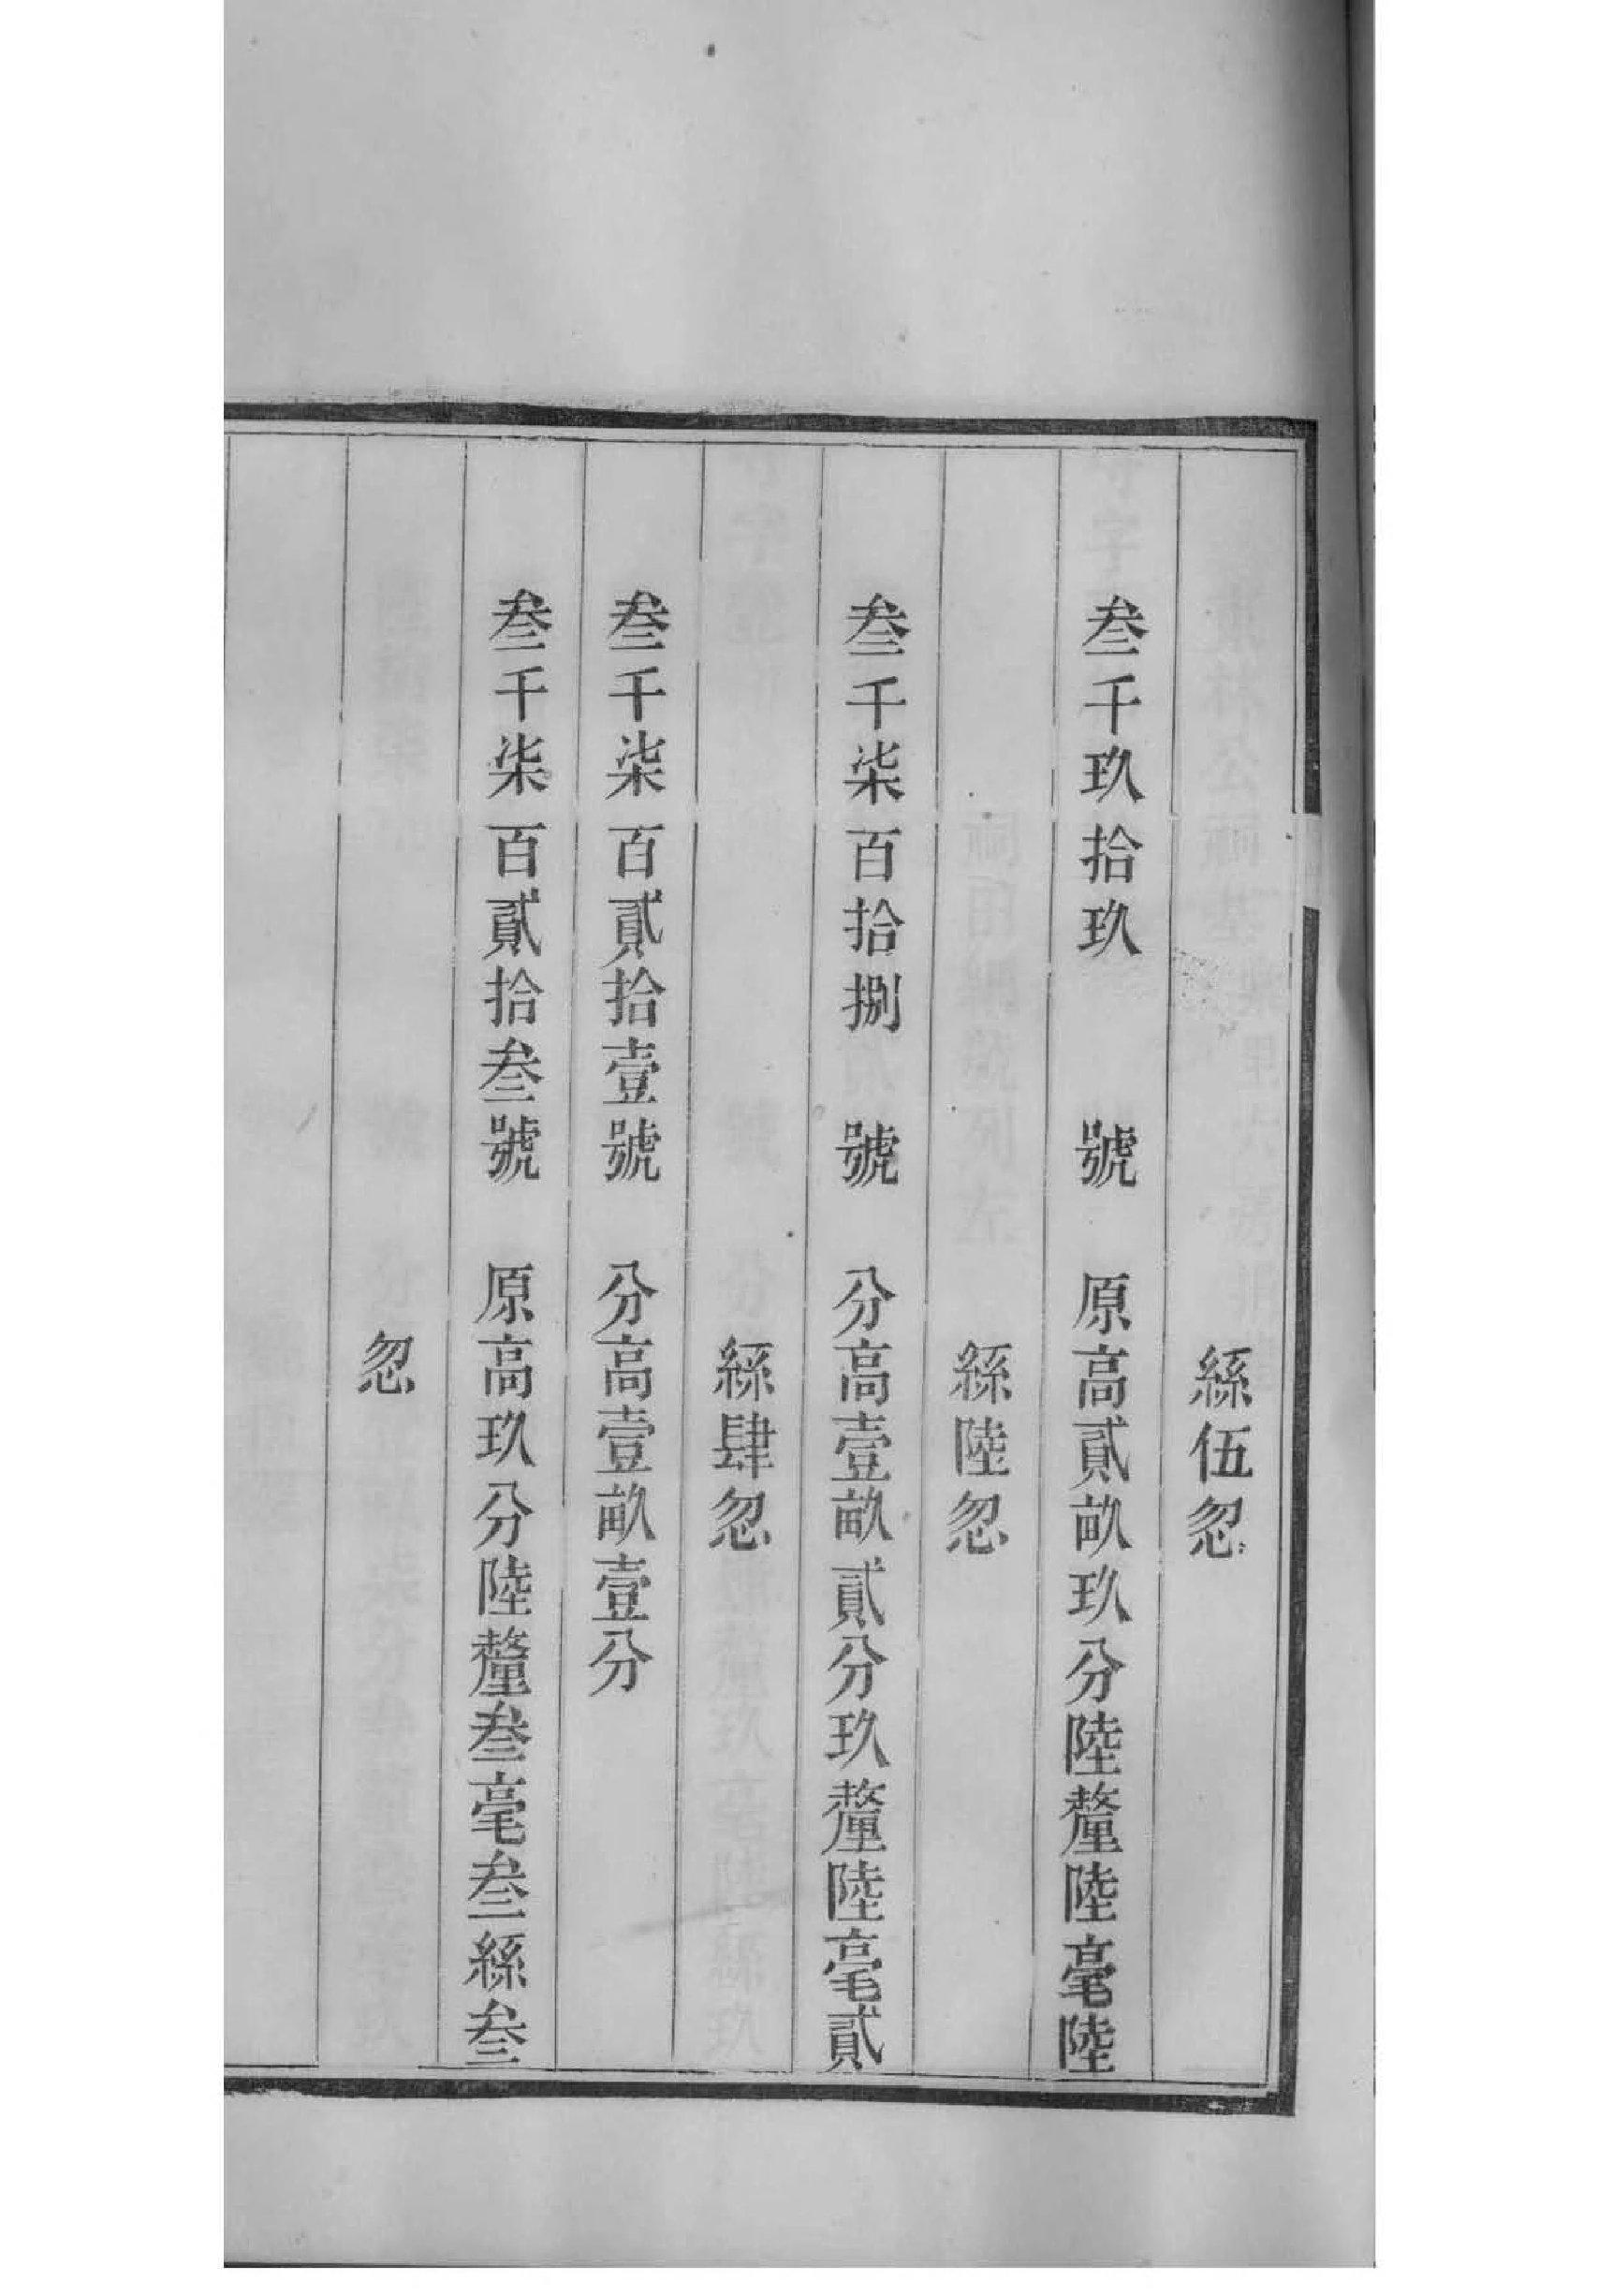 絲伍忽
叁千玖拾玖　號　原高貳畝玖分陸釐陸毫陸
絲陸忽
叁千柒百拾捌　號　分高壹畝貳分玖釐陸毫貳
絲肆忽
叁千柒百貳拾壹號　分高壹畝壹分
叁千柒百貳拾叁號　原高玖分陸釐叁毫叁絲叁
忽